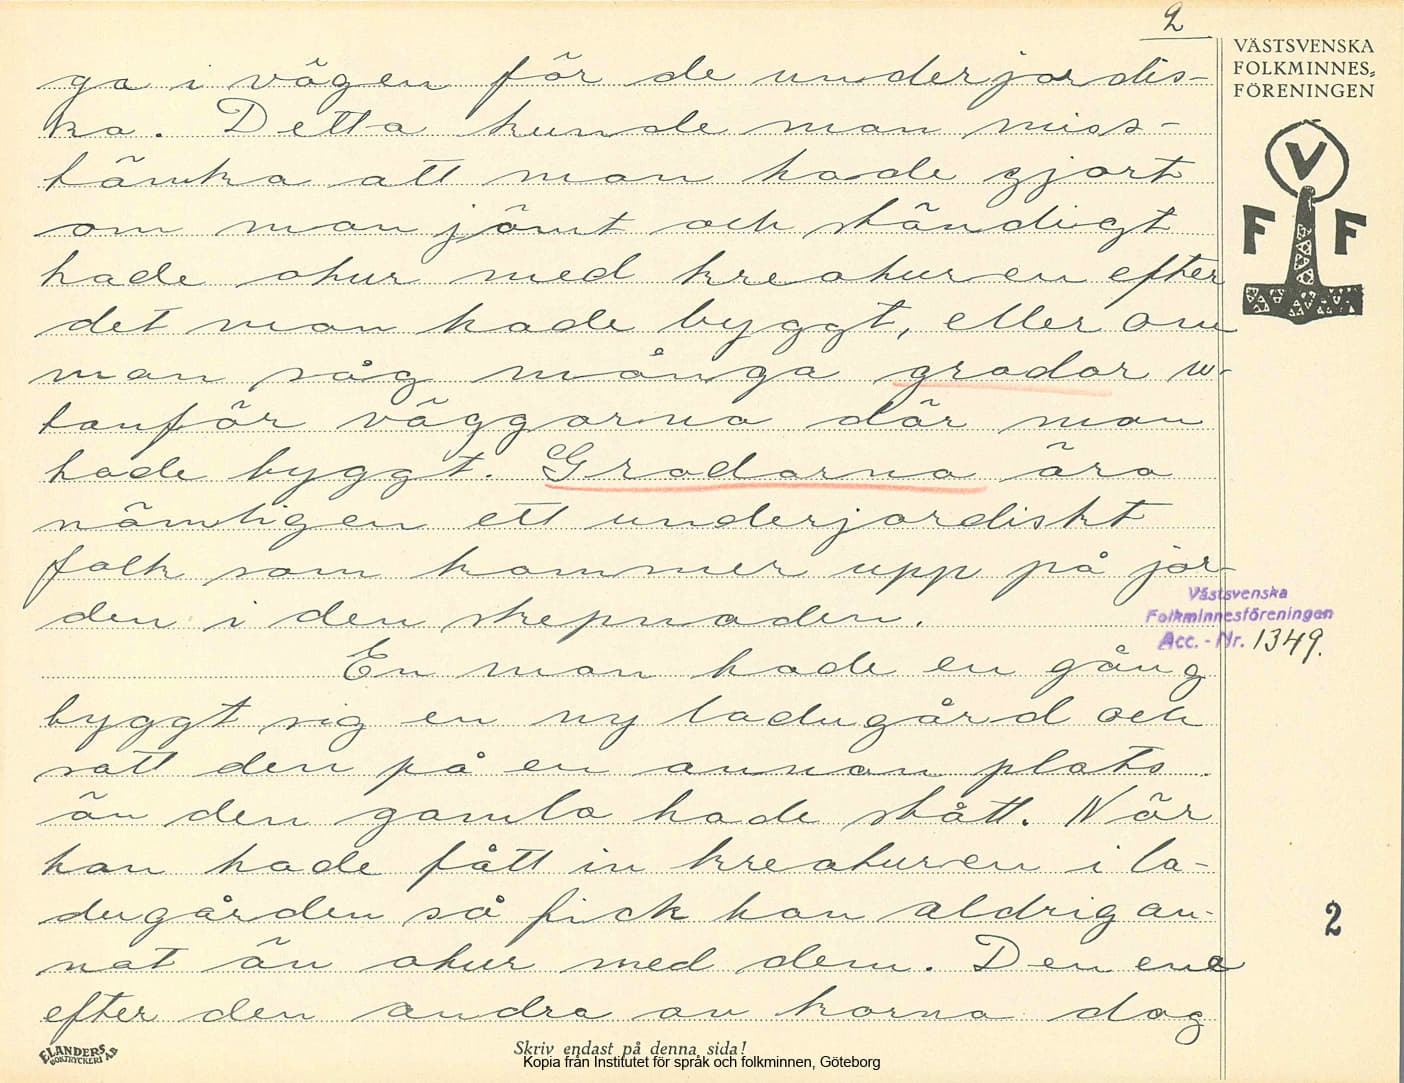 2
VÄSTSVENSKA
FOLKMINNES-
FÖRENINGEN
V
F F
ga i vägen för de underjordis-
ka. Detta kunde man miss-
tänka att man hade gjort
om man jämt och ständigt
hade otur med kreaturen efter
det man hade byggt, eller om
man såg många grodor u-
tanför väggarna där man
hade byggt. Grodorna äro
nämligen ett underjordiskt
folk som kommer upp på jor-
den i den skepnaden.
Västsvenska
Folkminnesföreningen
Acc. - Nr. 1349.
En man hade en gång
byggt sig en ny ladugård och
satt den på en annan plats
än den gamla hade stått. När
han hade fått in kreaturen i la-
dugården så fick han aldrig an-
nat än otur med dem. Den ene
efter den andra av korna dog
2
ELANDERS
BOKTRYCKERI AB
Skriv endast på denna sida!
Kopia från Institutet för språk och folkminnen, Göteborg